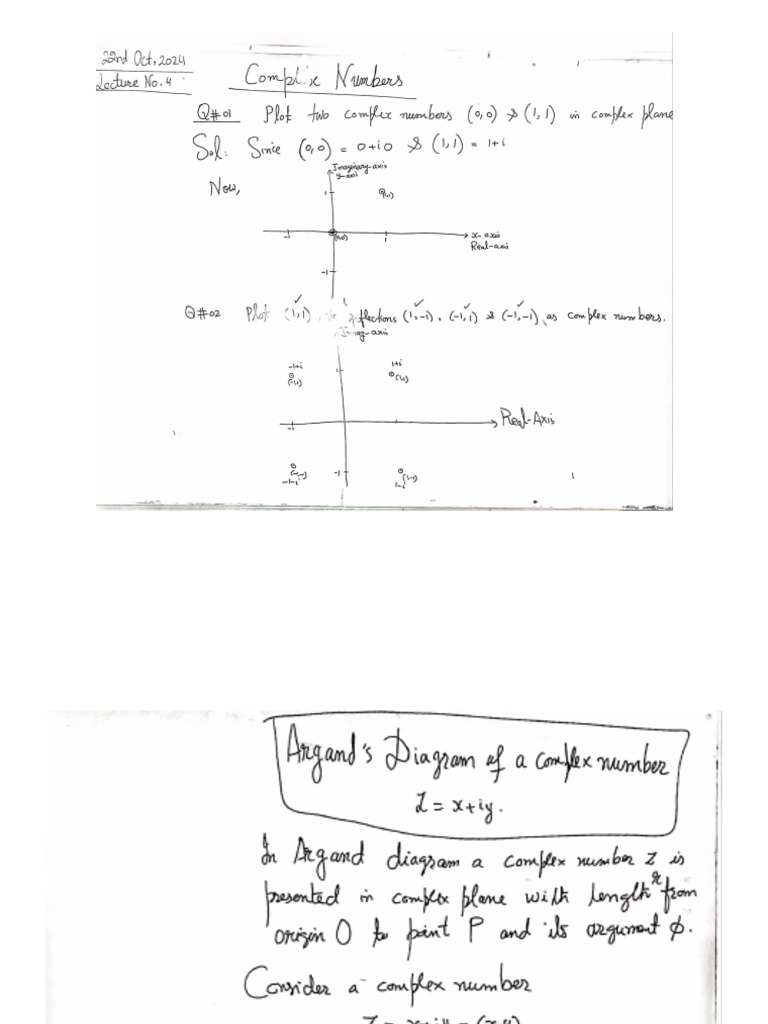 22nd Oct, 2024
Lecture No. 4
Complix Numbers
Q#01 Plot two complex numbers (0,0) & (1,1) in complex plane
Sol: Since (0,0) = 0+i0 & (1,1) = 1+i
Now,
Imaginary-axis
y-axis
1
(1,1)
-1
(0,0)
1
x-axis
Real-axis
-1
Q#02 Plot (1,1) flections (1,-1), (-1,1) & (-1,-1), as complex numbers.
Imag-axis
-1+i
(-1,1)
1
1+i
(1,1)
Real-Axis
-1
(-1,-1)
-1-i
-1
(1,-1)
1-i
Argand's Diagram of a complex number
Z = x+iy.
In Argand diagram a complex number Z is
presented in complex plane with length r from
origin O to point P and its argument φ.
Consider a complex number
Z = x+iy = (x,y)